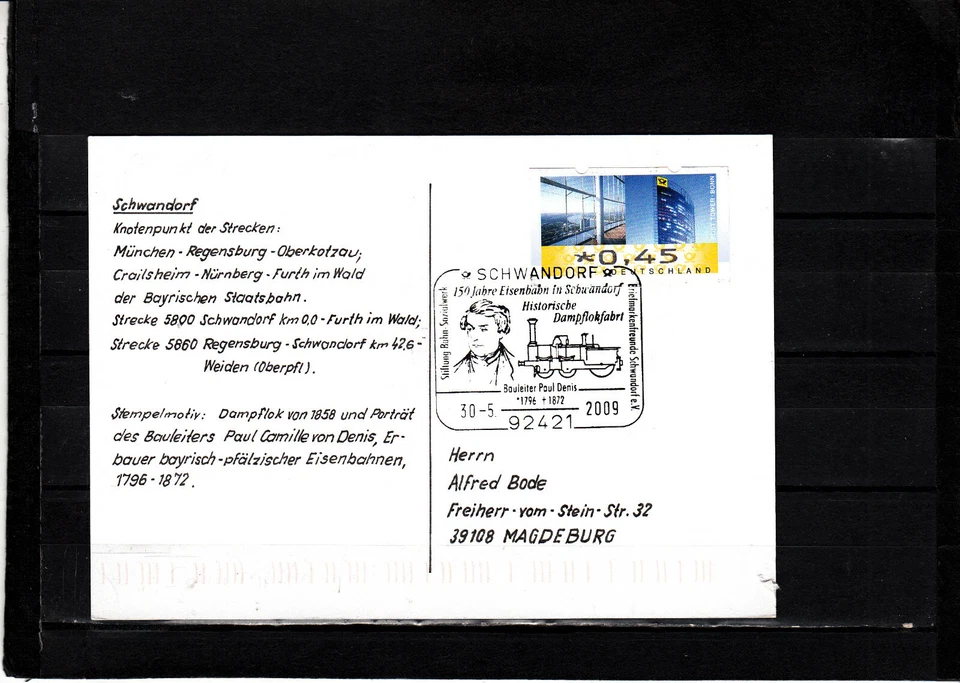 Schwandorf
Knotenpunkt der Strecken:
München - Regensburg - Oberkotzau;
Crailsheim - Nürnberg - Furth im Wald
der Bayrischen Staatsbahn.
Strecke 5800 Schwandorf km 0,0 - Furth im Wald;
Strecke 5860 Regensburg - Schwandorf km 42,6 -
Weiden (Oberpf).
Stempelmotiv: Dampflok von 1858 und Porträt
des Bauleiters Paul Camille von Denis, Er-
bauer bayrisch-pfälzischer Eisenbahnen,
1796 - 1872.
POSTTOWER BONN
*0,45
DEUTSCHLAND
SCHWANDORF
150 Jahre Eisenbahn in Schwandorf
Historische
Dampflokfahrt
Stiftung Bahn-Sozialwerk
Briefmarkenfreunde Schwandorf e.V.
Bauleiter Paul Denis
*1796 †1872
30-5. 2009
92421
Herrn
Alfred Bode
Freiherr-vom-Stein-Str. 32
39108 MAGDEBURG